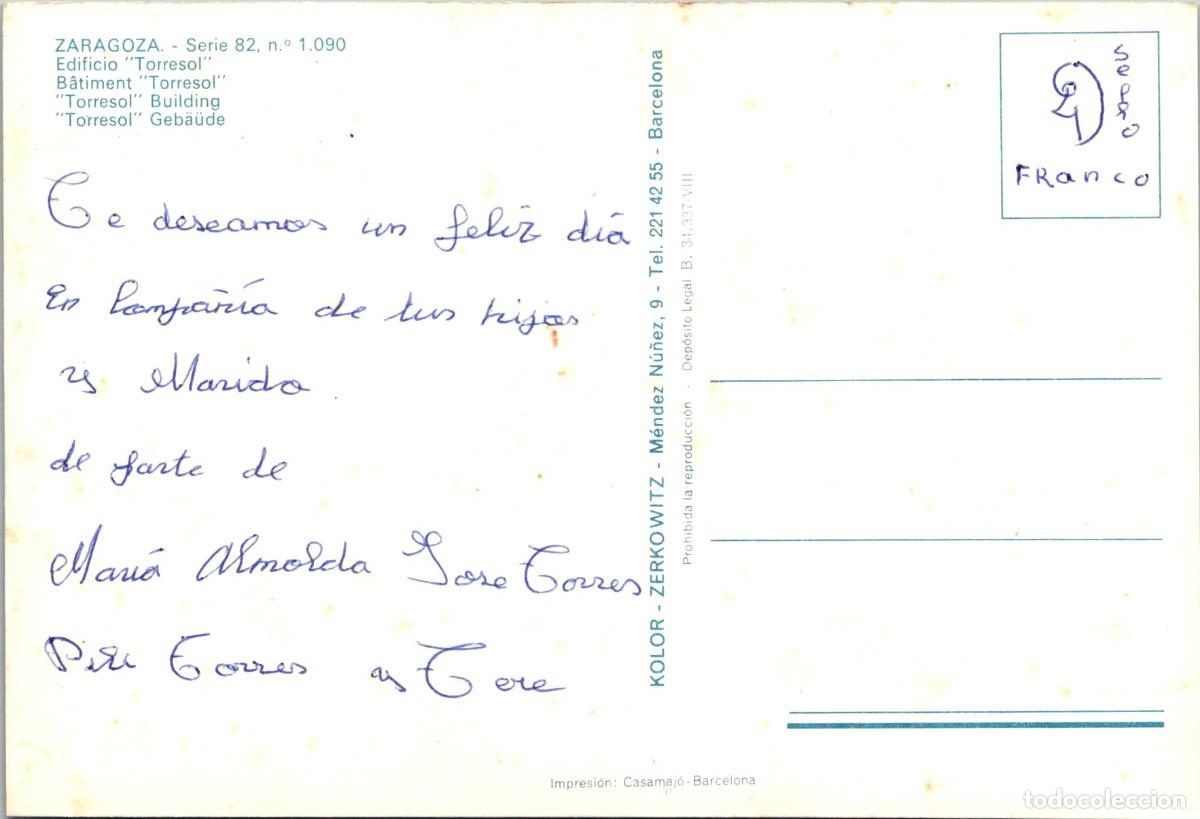 ZARAGOZA. - Serie 82, n.º 1.090
Edificio "Torresol"
Bâtiment "Torresol"
"Torresol" Building
"Torresol" Gebäüde
Te deseamos un feliz diá
En Compañía de tus hijos
y Marido
de parte de
Mariá Almolda Jose Torres
Pili Torres y Tere
KOLOR - ZERKOWITZ - Méndez Núñez, 9 - Tel. 221 42 55 - Barcelona
Prohibida la reproducción - Depósito Legal B. 34.337-VIII
Sello
FRanco
Impresión: Casamajó-Barcelona
todocoleccion